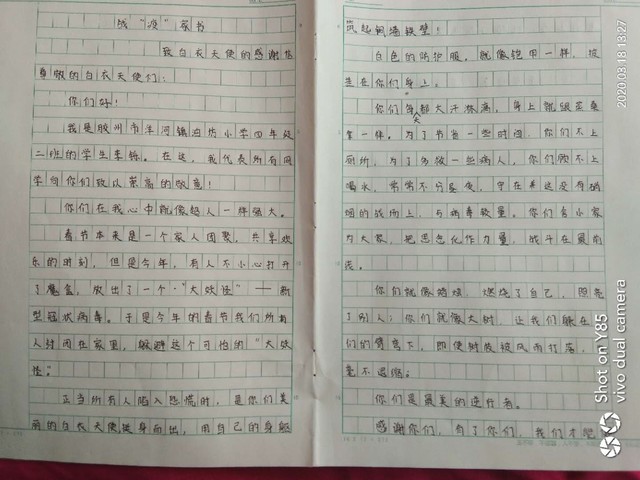 战“疫”家书
致白衣天使的感谢信
尊敬的白衣天使们:
你们好!
我是胶州市洋河镇泊坊小学四年级
二班的学生李铄。在这,我代表所有同
学向你们致以崇高的敬意!
你们在我心中就像超人一样强大。
春节本来是一个家人团聚,共享欢
乐的时刻,但是今年,有人不小心打开
了魔盒,放出了一个“大妖怪”——新
型冠状病毒。于是今年的春节我们所有
人封闭在家里,躲避这个可怕的“大妖
怪”。
正当所有人陷入恐慌时,是你们美
丽的白衣天使挺身而出,用自己的身躯
筑起钢墙铁壁!
白色的防护服,就像铠甲一样,披
在你们身上。
你们每天都大汗淋漓,身上就跟
一样。为了节省一些时间,你们不上
厕所,为了多救一些病人,你们顾不上
喝水,常常不分昼夜,守在这没有硝
烟的战场上,与病毒较量。你们舍小家
为大家,把思念化作力量,战斗在最前
线。
你们就像蜡烛,燃烧了自己,照亮
了别人;你们就像大树,让我们躲在
们的臂弯下,即使树被风雨打落,
毫不退缩。
你们是最美的逆行者。
感谢你们,有了你们,我们才能
2020.03.18 18:27
Shot on Y85
vivo dual camera